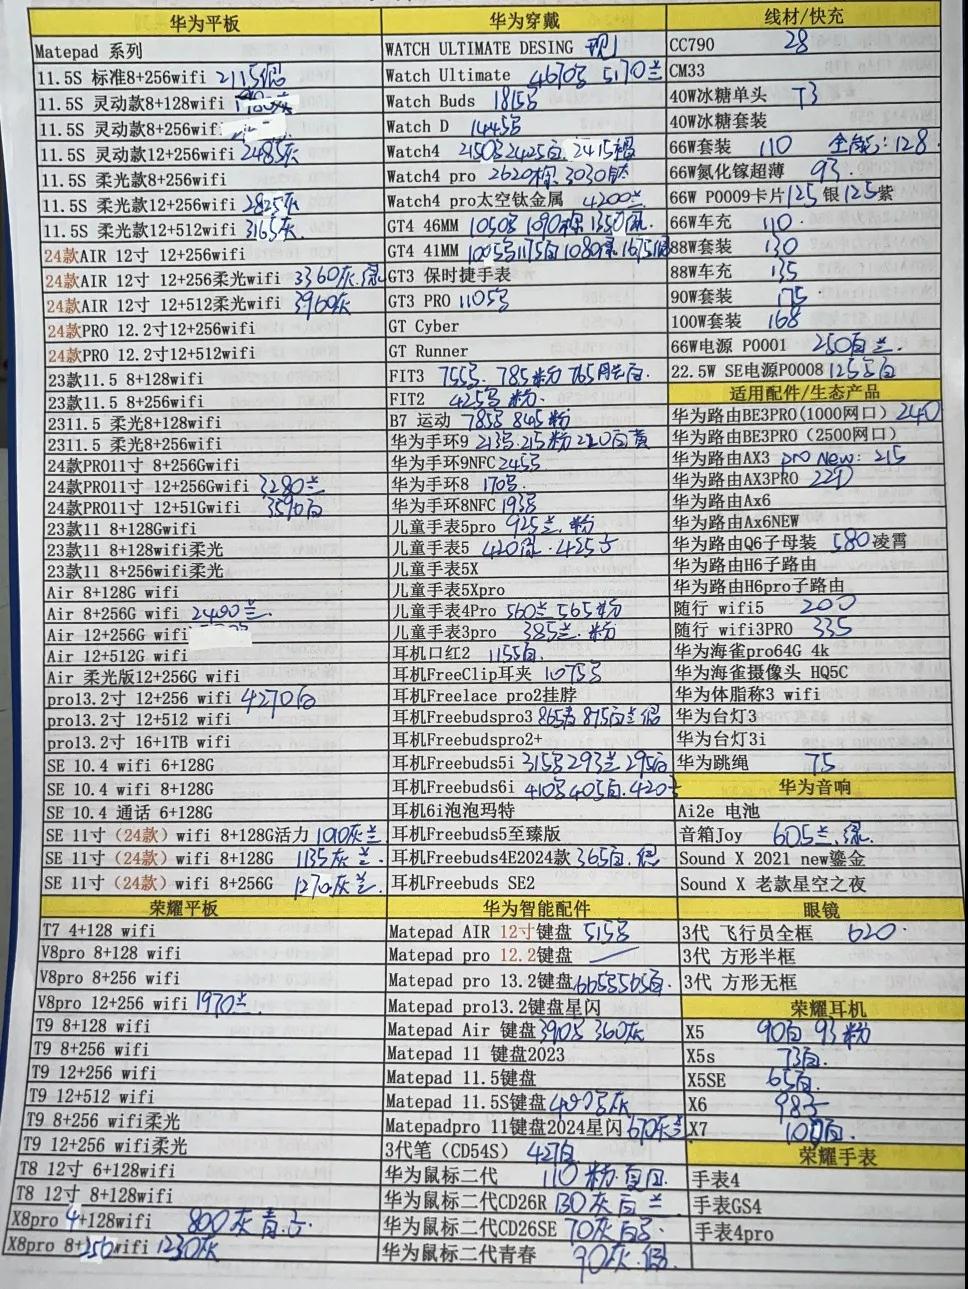 华为平板
Matepad 系列
11.5S 标准8+256wifi 2115
11.5S 灵动款8+128wifi
11.5S 灵动款8+256wifi
11.5S 灵动款12+256wifi 2485灰
11.5S 柔光款8+256wifi
11.5S 柔光款12+256wifi 2825灰
11.5S 柔光款12+512wifi 3165灰
24款AIR 12寸 12+256wifi
24款AIR 12寸 12+256柔光wifi 3360灰.绿
24款AIR 12寸 12+512柔光wifi 3960灰
24款PRO 12.2寸12+256wifi
24款PRO 12.2寸12+512wifi
23款11.5 8+128wifi
23款11.5 8+256wifi
2311.5 柔光8+128wifi
2311.5 柔光8+256wifi
24款PRO11寸 8+256Gwifi
24款PRO11寸 12+256Gwifi 3280兰
24款PRO11寸 12+51Gwifi 3590白
23款11 8+128Gwifi
23款11 8+128wifi柔光
23款11 8+256wifi柔光
Air 8+128G wifi
Air 8+256G wifi 2400兰
Air 12+256G wifi
Air 12+512G wifi
Air 柔光版12+256G wifi
pro13.2寸 12+256 wifi 4270白
pro13.2寸 12+512 wifi
pro13.2寸 16+1TB wifi
SE 10.4 wifi 6+128G
SE 10.4 wifi 8+128G
SE 10.4 通话 6+128G
SE 11寸（24款）wifi 8+128G活力 1010灰兰
SE 11寸（24款）wifi 8+128G 1135灰 兰
SE 11寸（24款）wifi 8+256G 1270灰兰
荣耀平板
T7 4+128 wifi
V8pro 8+128 wifi
V8pro 8+256 wifi
V8pro 12+256 wifi 1970兰
T9 8+128 wifi
T9 8+256 wifi
T9 12+256 wifi
T9 12+512 wifi
T9 8+256 wifi柔光
T9 12+256 wifi柔光
T8 12寸 6+128wifi
T8 12寸 8+128wifi
X8pro 4+128wifi 800灰 青
X8pro 8+256wifi 1230灰
华为穿戴
WATCH ULTIMATE DESING 现
Watch Ultimate 4670 5170兰
Watch Buds 1815
Watch D 1445
Watch4 2150 2425白 2415
Watch4 pro 2620棕 3030
Watch4 pro太空钛金属 4200兰
GT4 46MM 1050 1090 1350
GT4 41MM 1005 1175白 1080 1675
GT3 保时捷手表
GT3 PRO 1105
GT Cyber
GT Runner
FIT3 755 785粉 765白
FIT2 425 粉
B7 运动 785 845粉
华为手环9 213 215粉 220白黄
华为手环9NFC 245
华为手环8 170
华为手环8NFC 193
儿童手表5pro 925兰.粉
儿童手表5 420 425
儿童手表5X
儿童手表5Xpro
儿童手表4Pro 560兰 565粉
儿童手表3pro 385兰.粉
耳机口红2 1155白
耳机FreeClip耳夹 1075
耳机Freelace pro2挂脖
耳机Freebudspro3 865 875白兰
耳机Freebudspro2+
耳机Freebuds5i 315 293兰 295白
耳机Freebuds6i 410 405白 420
耳机6i泡泡玛特
耳机Freebuds5至臻版
耳机Freebuds4E2024款 365白
耳机Freebuds SE2
华为智能配件
Matepad AIR 12寸键盘 515
Matepad pro 12.2键盘
Matepad pro 13.2键盘 665 565白
Matepad pro13.2键盘星闪
Matepad Air 键盘 390 360灰
Matepad 11 键盘2023
Matepad 11.5键盘
Matepad 11.5S键盘 400灰
Matepadpro 11键盘2024星闪 670灰兰
3代笔（CD54S） 427白
华为鼠标二代 110 粉
华为鼠标二代CD26R 130灰白兰
华为鼠标二代CD26SE 70灰白
华为鼠标二代青春 90灰
线材/快充
CC790 28
CM33
40W冰糖单头 T3
40W冰糖套装
66W套装 110 全能: 128
66W氮化镓超薄 93
66W P0009卡片 125 银 125紫
66W车充 110
88W套装 130
88W车充 135
90W套装 175
100W套装 168
66W电源 P0001 250白兰
22.5W SE电源P0008 1255白
适用配件/生态产品
华为路由BE3PRO(1000网口) 240
华为路由BE3PRO（2500网口）
华为路由AX3 pro New: 215
华为路由AX3PRO 220
华为路由Ax6
华为路由Ax6NEW
华为路由Q6子母装 580凌霄
华为路由H6子路由
华为路由H6pro子路由
随行 wifi5 200
随行 wifi3PRO 335
华为海雀pro64G 4k
华为海雀摄像头 HQ5C
华为体脂称3 wifi
华为台灯3
华为台灯3i
华为跳绳 75
华为音响
Ai2e 电池
音箱Joy 605兰.绿
Sound X 2021 new鎏金
Sound X 老款星空之夜
眼镜
3代 飞行员全框 620
3代 方形半框
3代 方形无框
荣耀耳机
X5 90白 93粉
X5s 73白
X5SE 65白
X6 98
X7 100白
荣耀手表
手表4
手表GS4
手表4pro